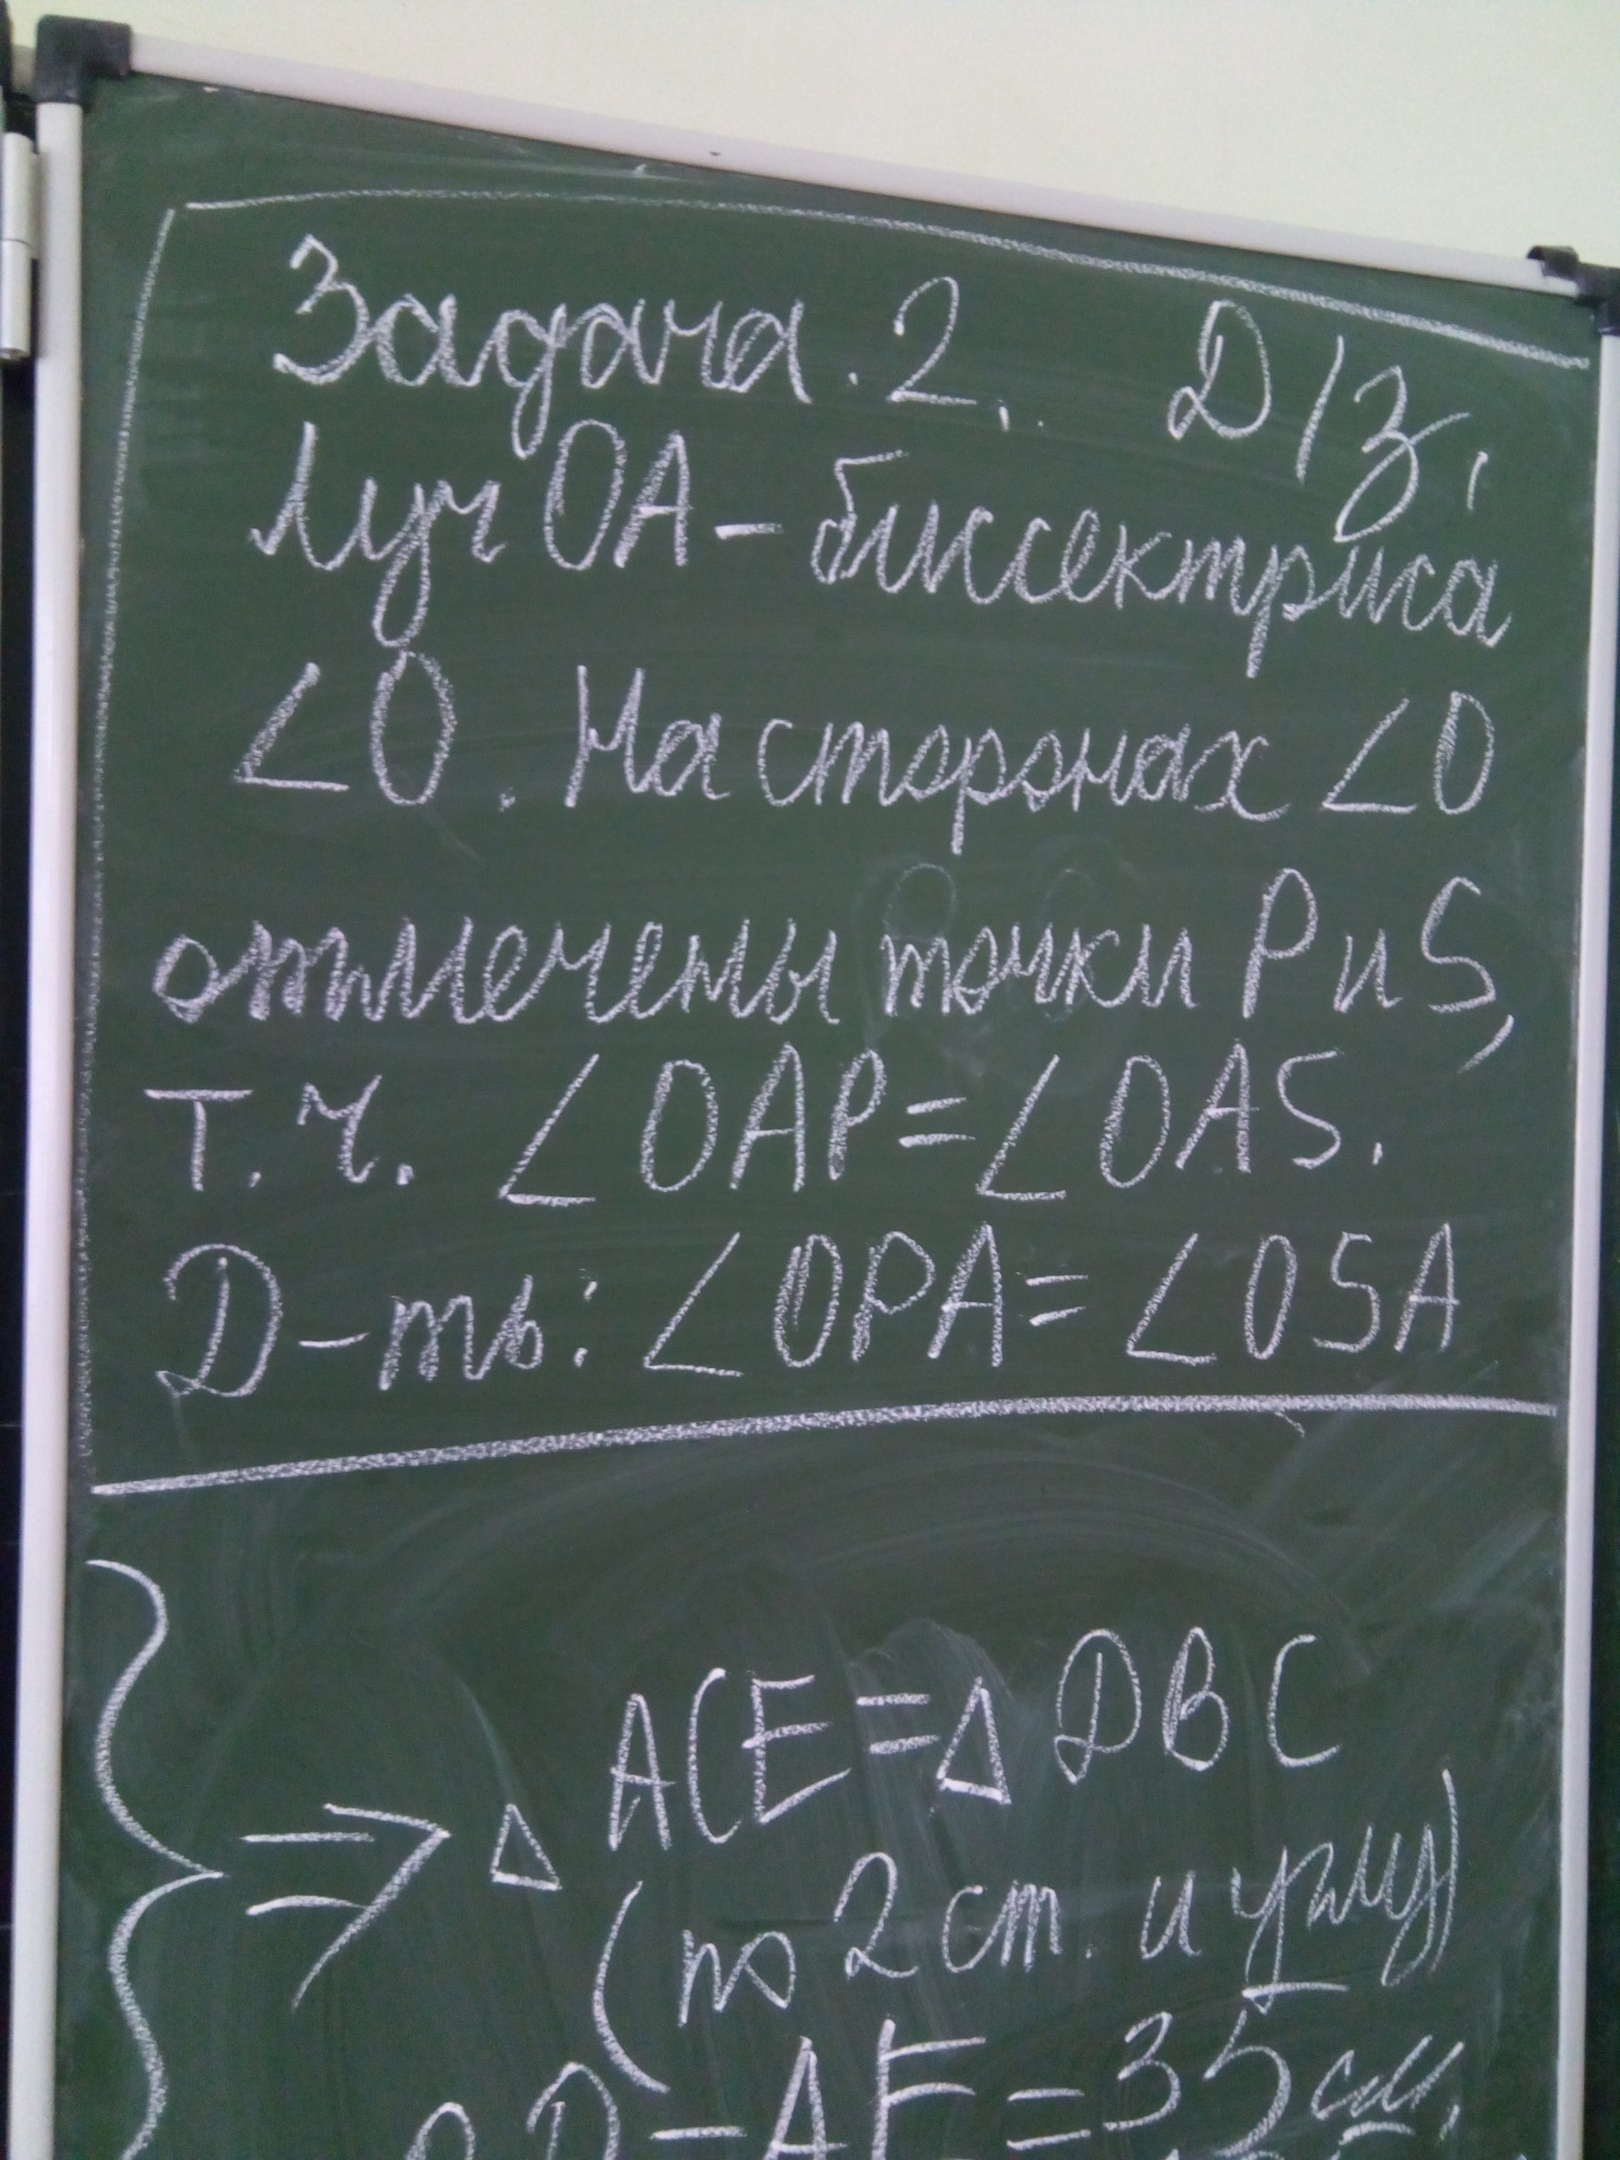 Задача. 2. Д/з.
Луч OA - биссектриса
∠O. На сторонах ∠O
отмечены точки P и S,
т.ч. ∠OAP = ∠OAS.
Д-ть: ∠OPA = ∠OSA
ACE = Δ DBC
⇒ Δ
(по 2 ст. и углу)
= 35 см,